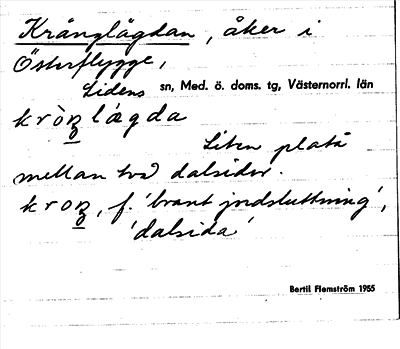 Krånglägdan, åker i
Österflygge,
Lidens sn, Med. ö. doms. tg, Västernorrl. län
krὸŋlágda
Liten platå
mellan två dalsidor.
kroŋ, f. 'brant jordsluttning',
'dalsida'
Bertil Flemström 1955